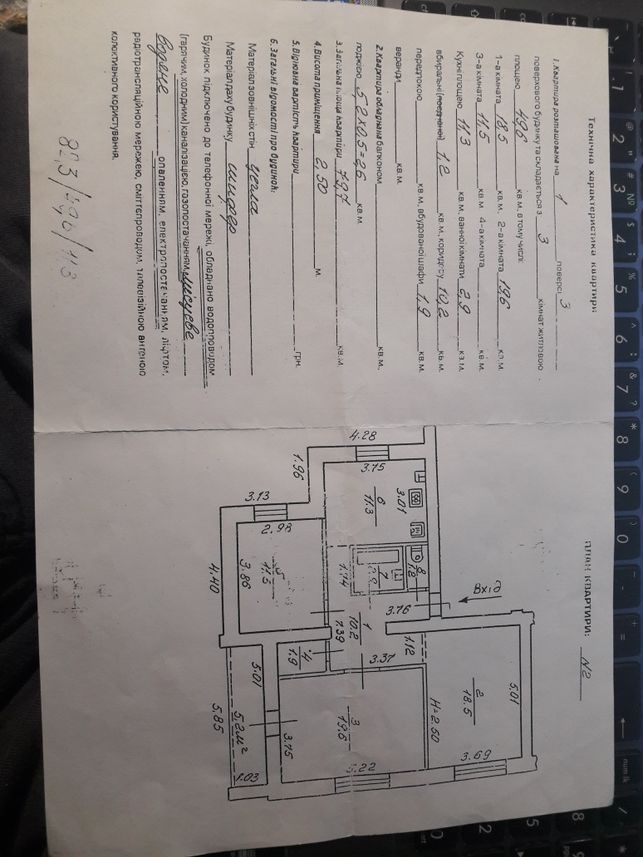 Технічна характеристика квартири
1. Квартира розташована на 1 поверсі 3
поверхового будинку та складається з 3 кімнат житловою
площею 49,6 кв.м, в тому числі:
1-а кімната 18,5 кв.м. 2-а кімната 19,6 кв.м.
3-а кімната 11,5 кв.м. 4-а кімната кв.м.
Кухні площею 11,3 кв.м, ванної кімнати 2,9 кв.м.
вбиральні (поєднаної) 1,2 кв.м, коридору 10,2 кв.м.
передпокою кв.м, вбудованої шафи 1,9 кв.м.
веранди кв.м.
2. Квартира обладнана балконом кв.м.
лоджією 5,2x0,5=2,6 кв.м.
3. Загальна площа квартири 79,7 кв.м
4. Висота приміщення 2,50 м.
5. Відновна вартість квартири грн.
6. Загальні відомості про будинок:
Матеріал зовнішніх стін цегла
Матеріал даху будинку шифер
Будинок підключено до телефонної мережі, обладнано водопроводом
(гарячим, холодним) каналізацією, газопостачанням, місцеве
водяне опаленням, електропостачанням, ліфтом,
радіотрансляційною мережею, сміттєпроводом, телевізійною антеною
колективного користування.
82,3/49,6/11,3
ПЛАН КВАРТИРИ: N2
Вхід
4.28
3.75
1.96
6
11.3
3.01
3.13
2.98
3.86
5
11.5
4.40
7
2.9
8
1.2
1.14
3.76
1
10.2
1.39
4
1.9
3.37
1.12
2
18.5
5.01
H=2.50
3.69
3
19.6
3.75
5.22
5.01
5.2м²
1.03
5.85